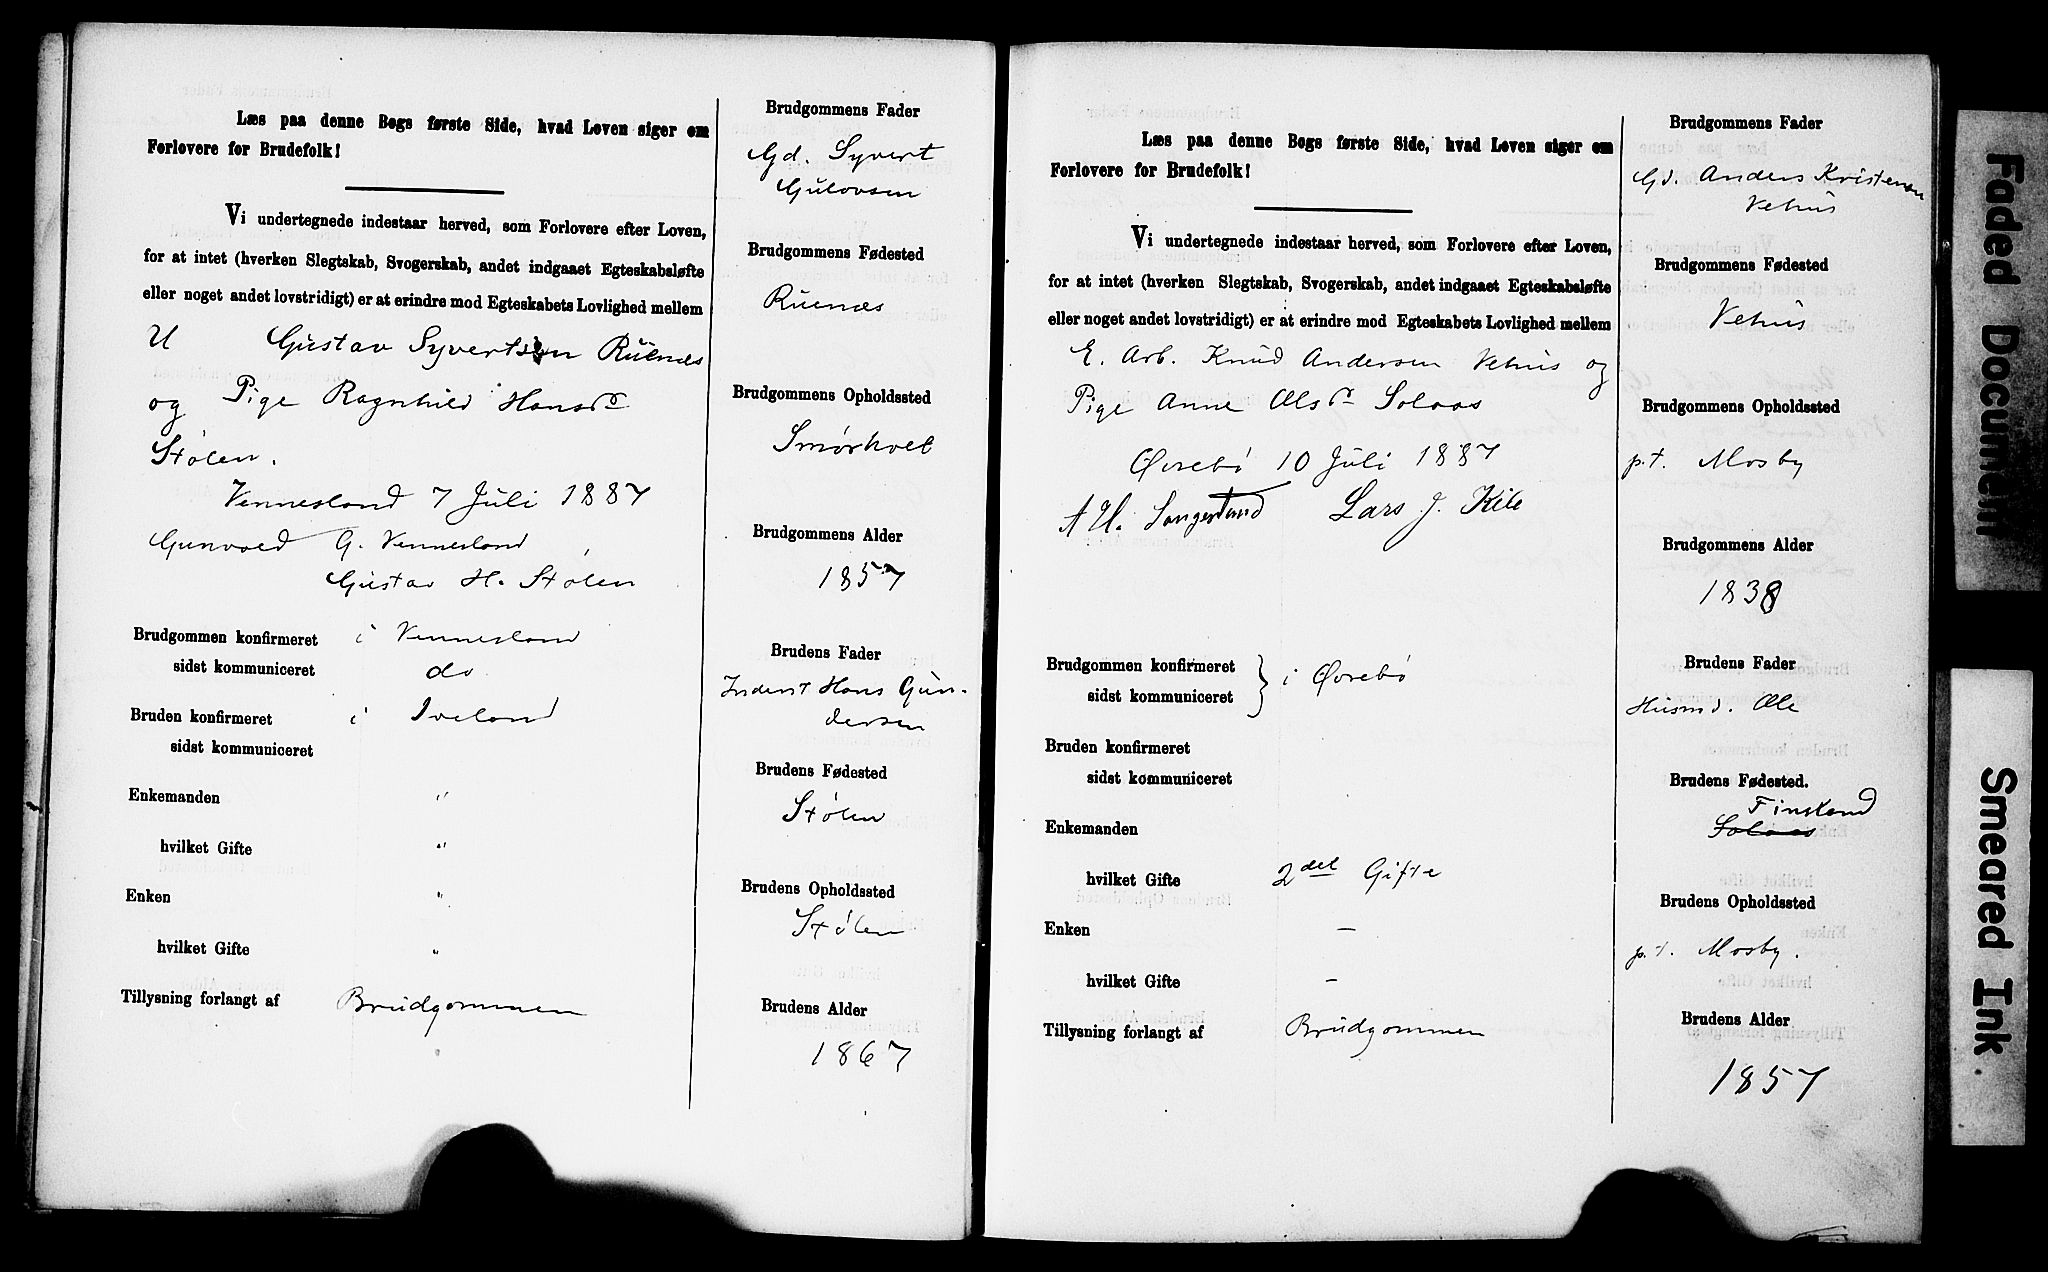 Læs paa denne Bogs første Side, hvad Loven siger om
Forlovere for Brudefolk!
Vi undertegnede indestaar herved, som Forlovere efter Loven,
for at intet (hverken Slegtskab, Svogerskab, andet indgaaet Egteskabsløfte
eller noget andet lovstridigt) er at erindre mod Egteskabets Lovlighed mellem
U Gustav Syvertsen Ruenæs
og Pige Ragnhild Hansd.
Stølen.
Vennesland 7 Juli 1887
Gunvald G. Vennesland
Gustav H. Stølen
Brudgommen konfirmeret i Vennesland
sidst kommuniceret do
Bruden konfirmeret i Iveland
sidst kommuniceret
Enkemanden "
hvilket Gifte "
Enken "
hvilket Gifte "
Tillysning forlangt af Brudgommen
Brudgommens Fader
Gd. Syvert
Gulovsen
Brudgommens Fødested
Ruenæs
Brudgommens Opholdssted
Smørhvel
Brudgommens Alder
1857
Brudens Fader
Inderst Hans Gun-
dersen
Brudens Fødested
Stølen
Brudens Opholdssted
Stølen
Brudens Alder
1867
Læs paa denne Bogs første Side, hvad Loven siger om
Forlovere for Brudefolk!
Vi undertegnede indestaar herved, som Forlovere efter Loven,
for at intet (hverken Slegtskab, Svogerskab, andet indgaaet Egteskabsløfte
eller noget andet lovstridigt) er at erindre mod Egteskabets Lovlighed mellem
E. Arb. Knud Andersen Vehus og
Pige Anne Olsd. Solaas
Øvrebø 10 Juli 1887
A H. Sangesland Lars J. Kile
Brudgommen konfirmeret } i Øvrebø
sidst kommuniceret
Bruden konfirmeret
sidst kommuniceret
Enkemanden
hvilket Gifte 2det Gifte
Enken –
hvilket Gifte –
Tillysning forlangt af Brudgommen
Brudgommens Fader
Gd. Anders Kristensen
Vehus
Brudgommens Fødested
Vehus
Brudgommens Opholdssted
p.t. Mosby
Brudgommens Alder
1838
Brudens Fader
Husmd. Ole
Brudens Fødested.
Finsland
Solaas
Brudens Opholdssted
p.t. Mosby.
Brudens Alder
1857
Faded Document
Smeared Ink